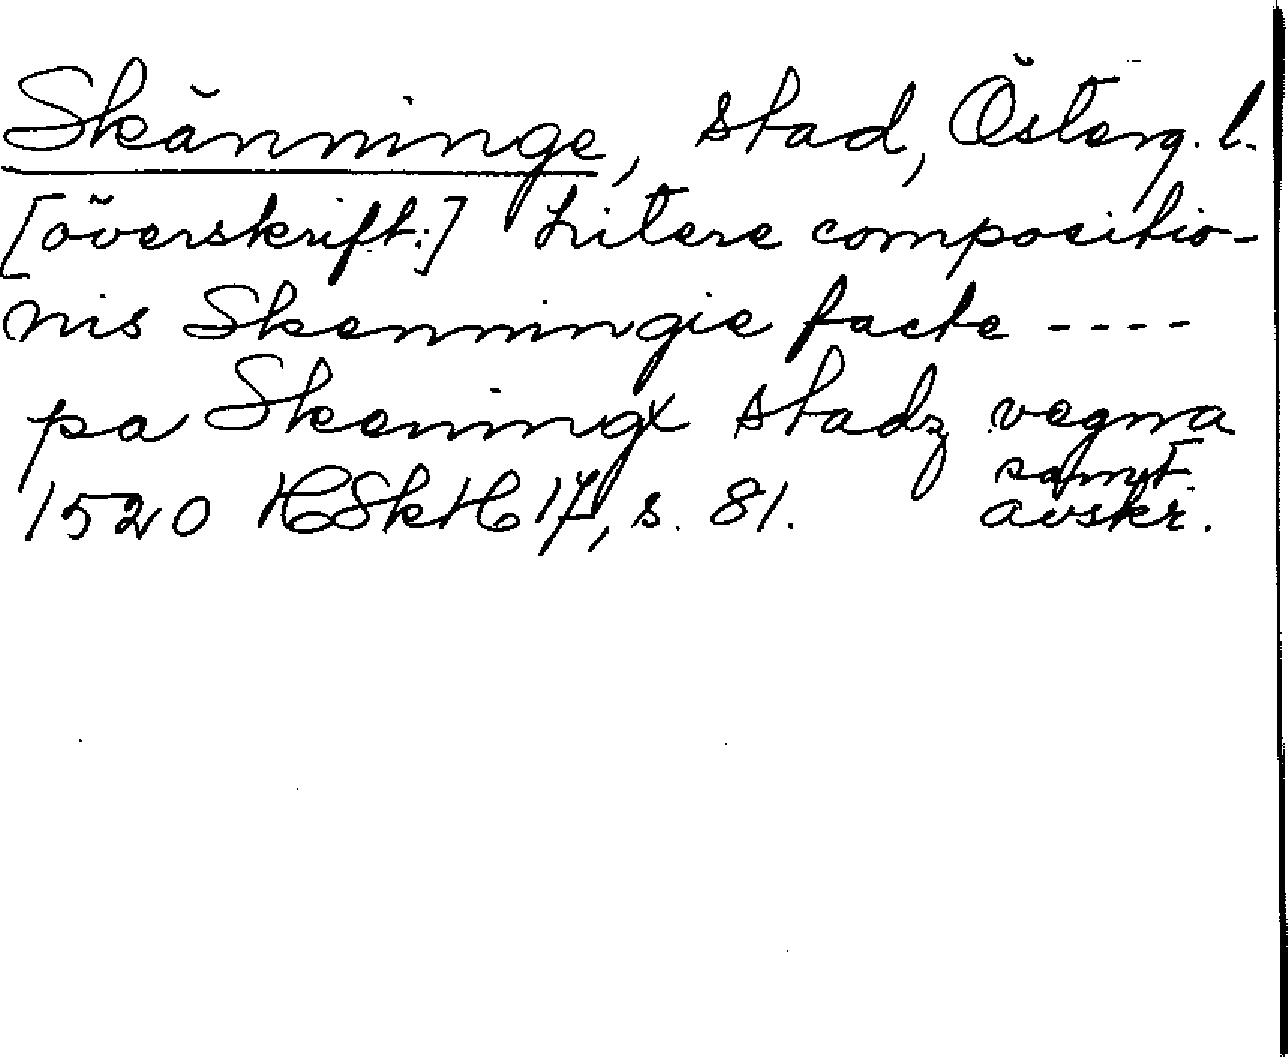 Skänninge, stad, Österg. l.
[överskrift:] Litere compositio-
nis Skenningie facte ----
pa Skeningx stadz vegna
samt.
1520 HSkH 17, s. 81. avskr.